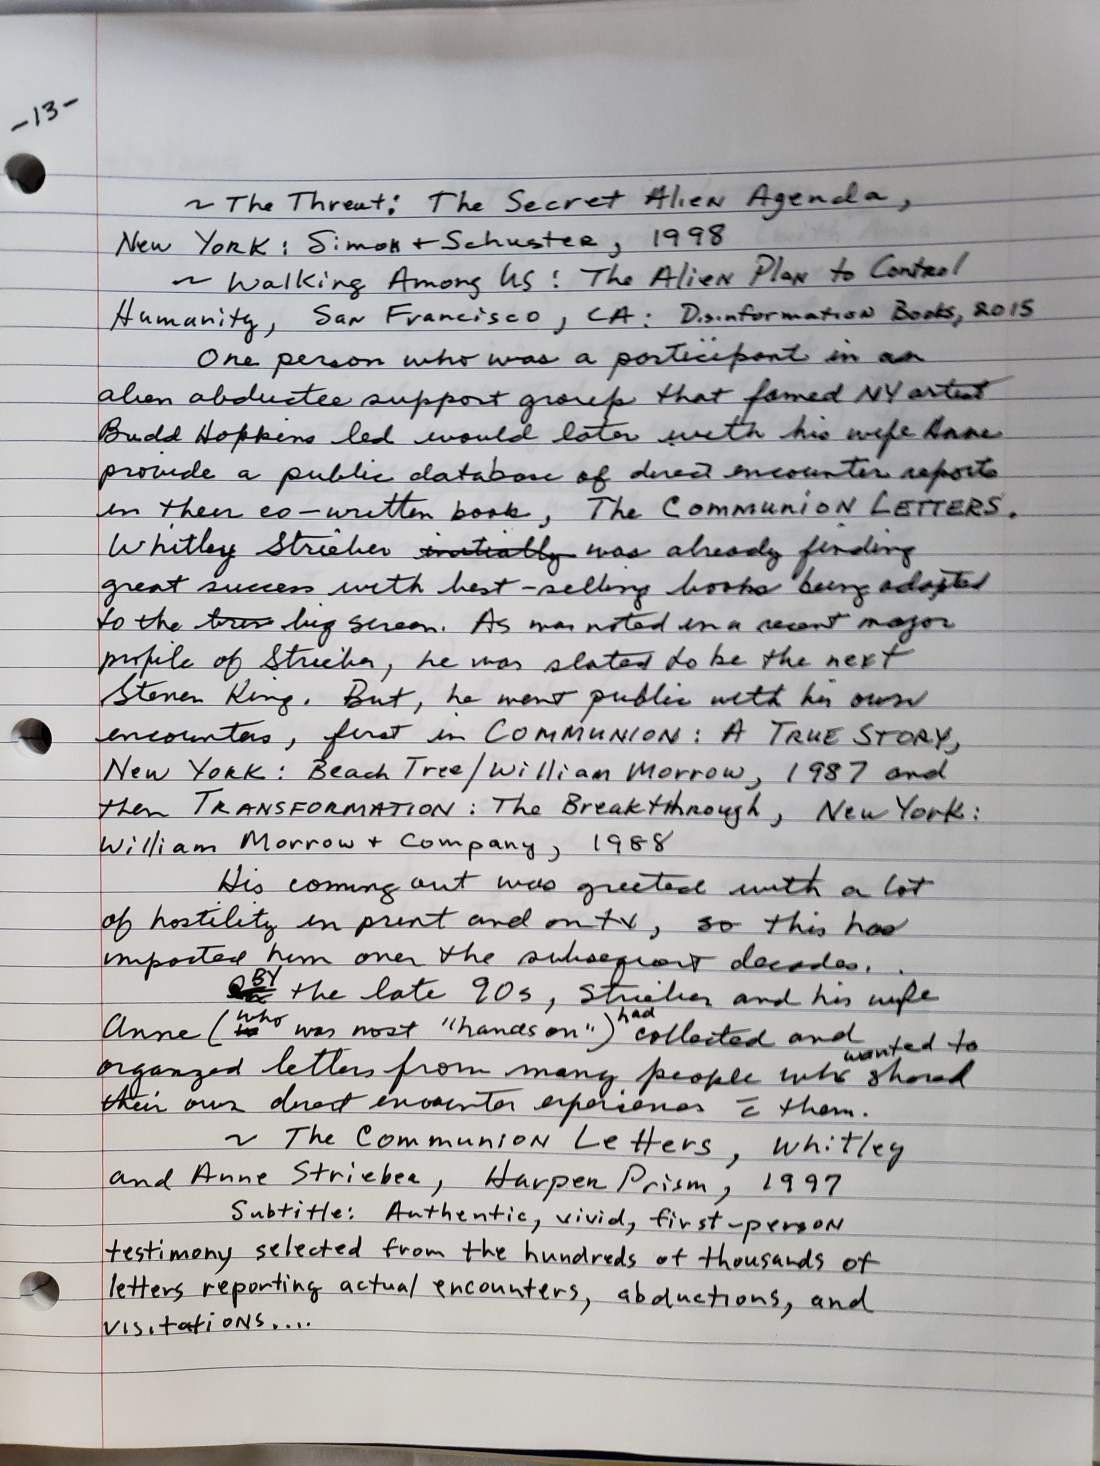 -13-
~ The Threat: The Secret Alien Agenda,
New York: Simon + Schuster, 1998
~ Walking Among Us: The Alien Plan to Control
Humanity, San Francisco, CA: Disinformation Books, 2015
One person who was a participant in an
alien abductee support group that famed NY artist
Budd Hopkins led would later with his wife Anne
provide a public database of direct encounter reports
in their co-written book, The COMMUNION LETTERS.
Whitley Strieber initially was already finding
great success with best-selling books being adapted
to the big screen. As was noted in a recent major
profile of Strieber, he was slated to be the next
Steven King. But, he went public with his own
encounters, first in COMMUNION: A TRUE STORY,
New York: Beach Tree/William Morrow, 1987 and
then TRANSFORMATION: The Breakthrough, New York:
William Morrow + Company, 1988
His coming out was greeted with a lot
of hostility in print and on tv, so this has
impacted him over the subsequent decades.
BY the late 90s, Strieber and his wife
Anne (who was most "hands on") had collected and
organized letters from many people who wanted to shared
their own direct encounter experiences c̄ them.
~ The Communion Letters, Whitley
and Anne Strieber, Harper Prism, 1997
Subtitle: Authentic, vivid, first-person
testimony selected from the hundreds of thousands of
letters reporting actual encounters, abductions, and
visitations....